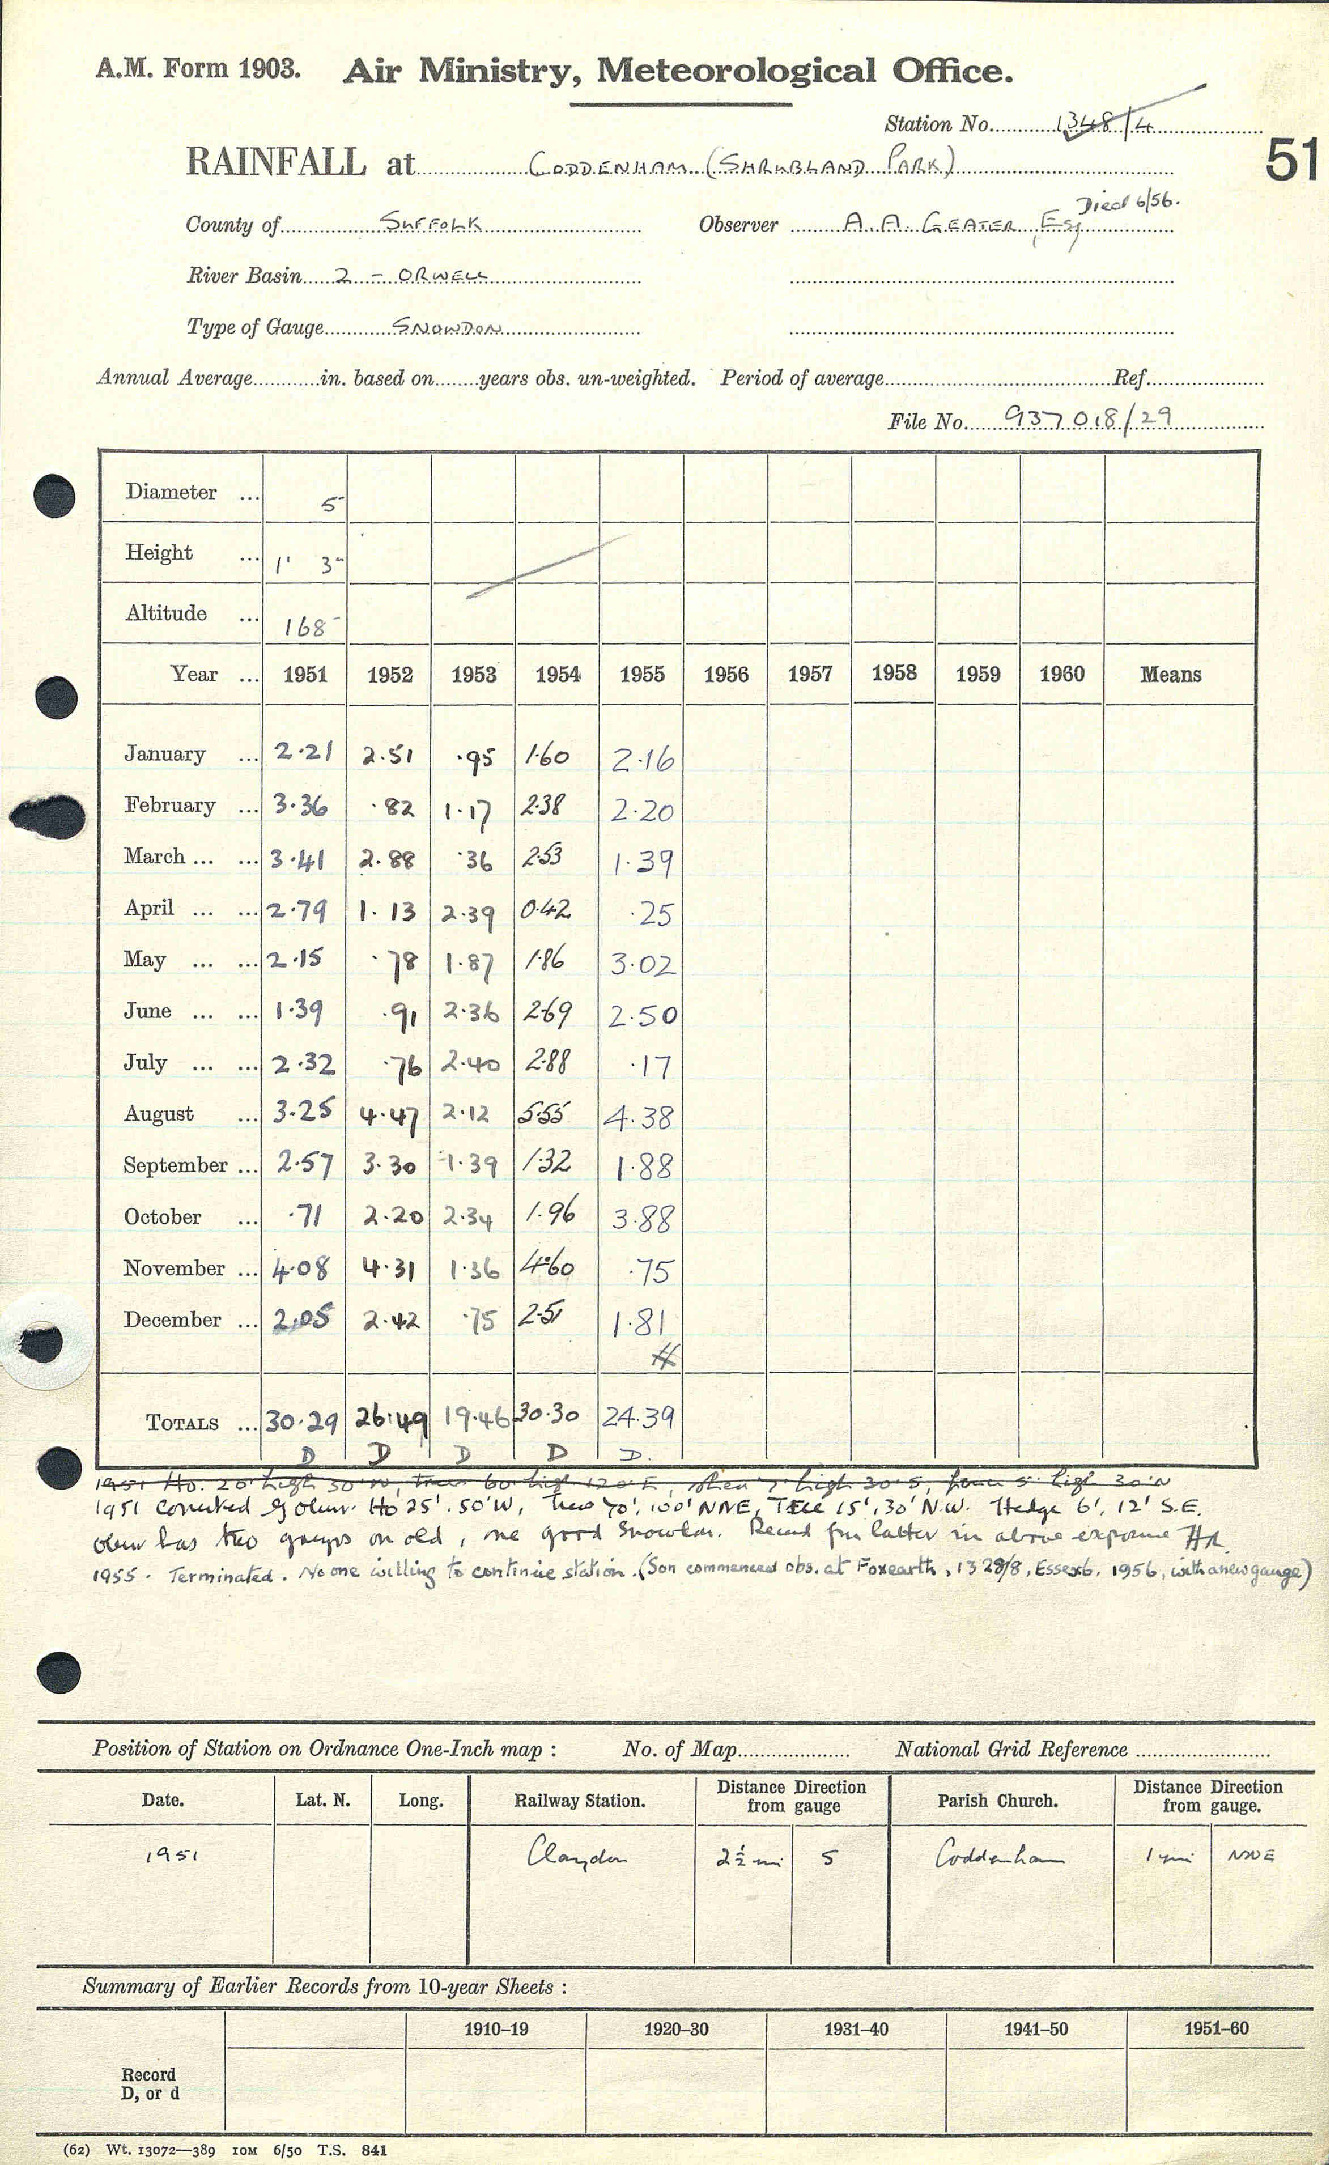 A.M. Form 1903. Air Ministry, Meteorological Office.
Station No. 1348/4
RAINFALL at CODDENHAM (SHRUBLAND PARK)
51
Died 6/56.
County of SUFFOLK Observer A. A. GEATER, Esq
River Basin 2 - ORWELL
Type of Gauge SNOWDON
Annual Average in. based on years obs. un-weighted. Period of average Ref.
File No. 937018/29
Diameter ... 5"
Height ... 1' 3"
Altitude ... 168
Year ... 1951 1952 1953 1954 1955 1956 1957 1958 1959 1960 Means
January ... 2.21 2.51 .95 1.60 2.16
February ... 3.36 .82 1.17 2.38 2.20
March ... ... 3.41 2.88 .36 2.53 1.39
April ... ... 2.79 1.13 2.39 0.42 .25
May ... ... 2.15 .78 1.87 1.86 3.02
June ... ... 1.39 .91 2.36 2.69 2.50
July ... ... 2.32 .76 2.40 2.88 .17
August ... 3.25 4.47 2.12 5.55 4.38
September ... 2.57 3.30 1.39 1.32 1.88
October ... .71 2.20 2.34 1.96 3.88
November ... 4.08 4.31 1.36 4.60 .75
December ... 2.05 2.42 .75 2.51 1.81
TOTALS ... 30.29 26.49 19.46 30.30 24.39
D D D D D.
1951 Ho. 20' high 30' W, trees 60' high 120' E, 7' high 30' S, fence 5' high 30' N
1951 Corrected by obsvr. Ho 25', 50' W, Trees 70', 100' NNE, Tree 15', 30' N.W. Hedge 6', 12' S.E.
obsvr has two gauges on old, one good Snowdon. Record from latter in above exposure
1955 - Terminated. No one willing to continue station. (Son commenced obs. at Foxearth, 1328/8, Essex 6, 1956, with a new gauge)
Position of Station on Ordnance One-Inch map : No. of Map National Grid Reference
Date. Lat. N. Long. Railway Station. Distance from gauge Direction Parish Church. Distance from gauge. Direction
1951 Claydon 2½ mi S Coddenham 1 mi NNE
Summary of Earlier Records from 10-year Sheets :
1910–19 1920–30 1931–40 1941–50 1951–60
Record
D, or d
(62) Wt. 13072—389 10M 6/50 T.S. 841